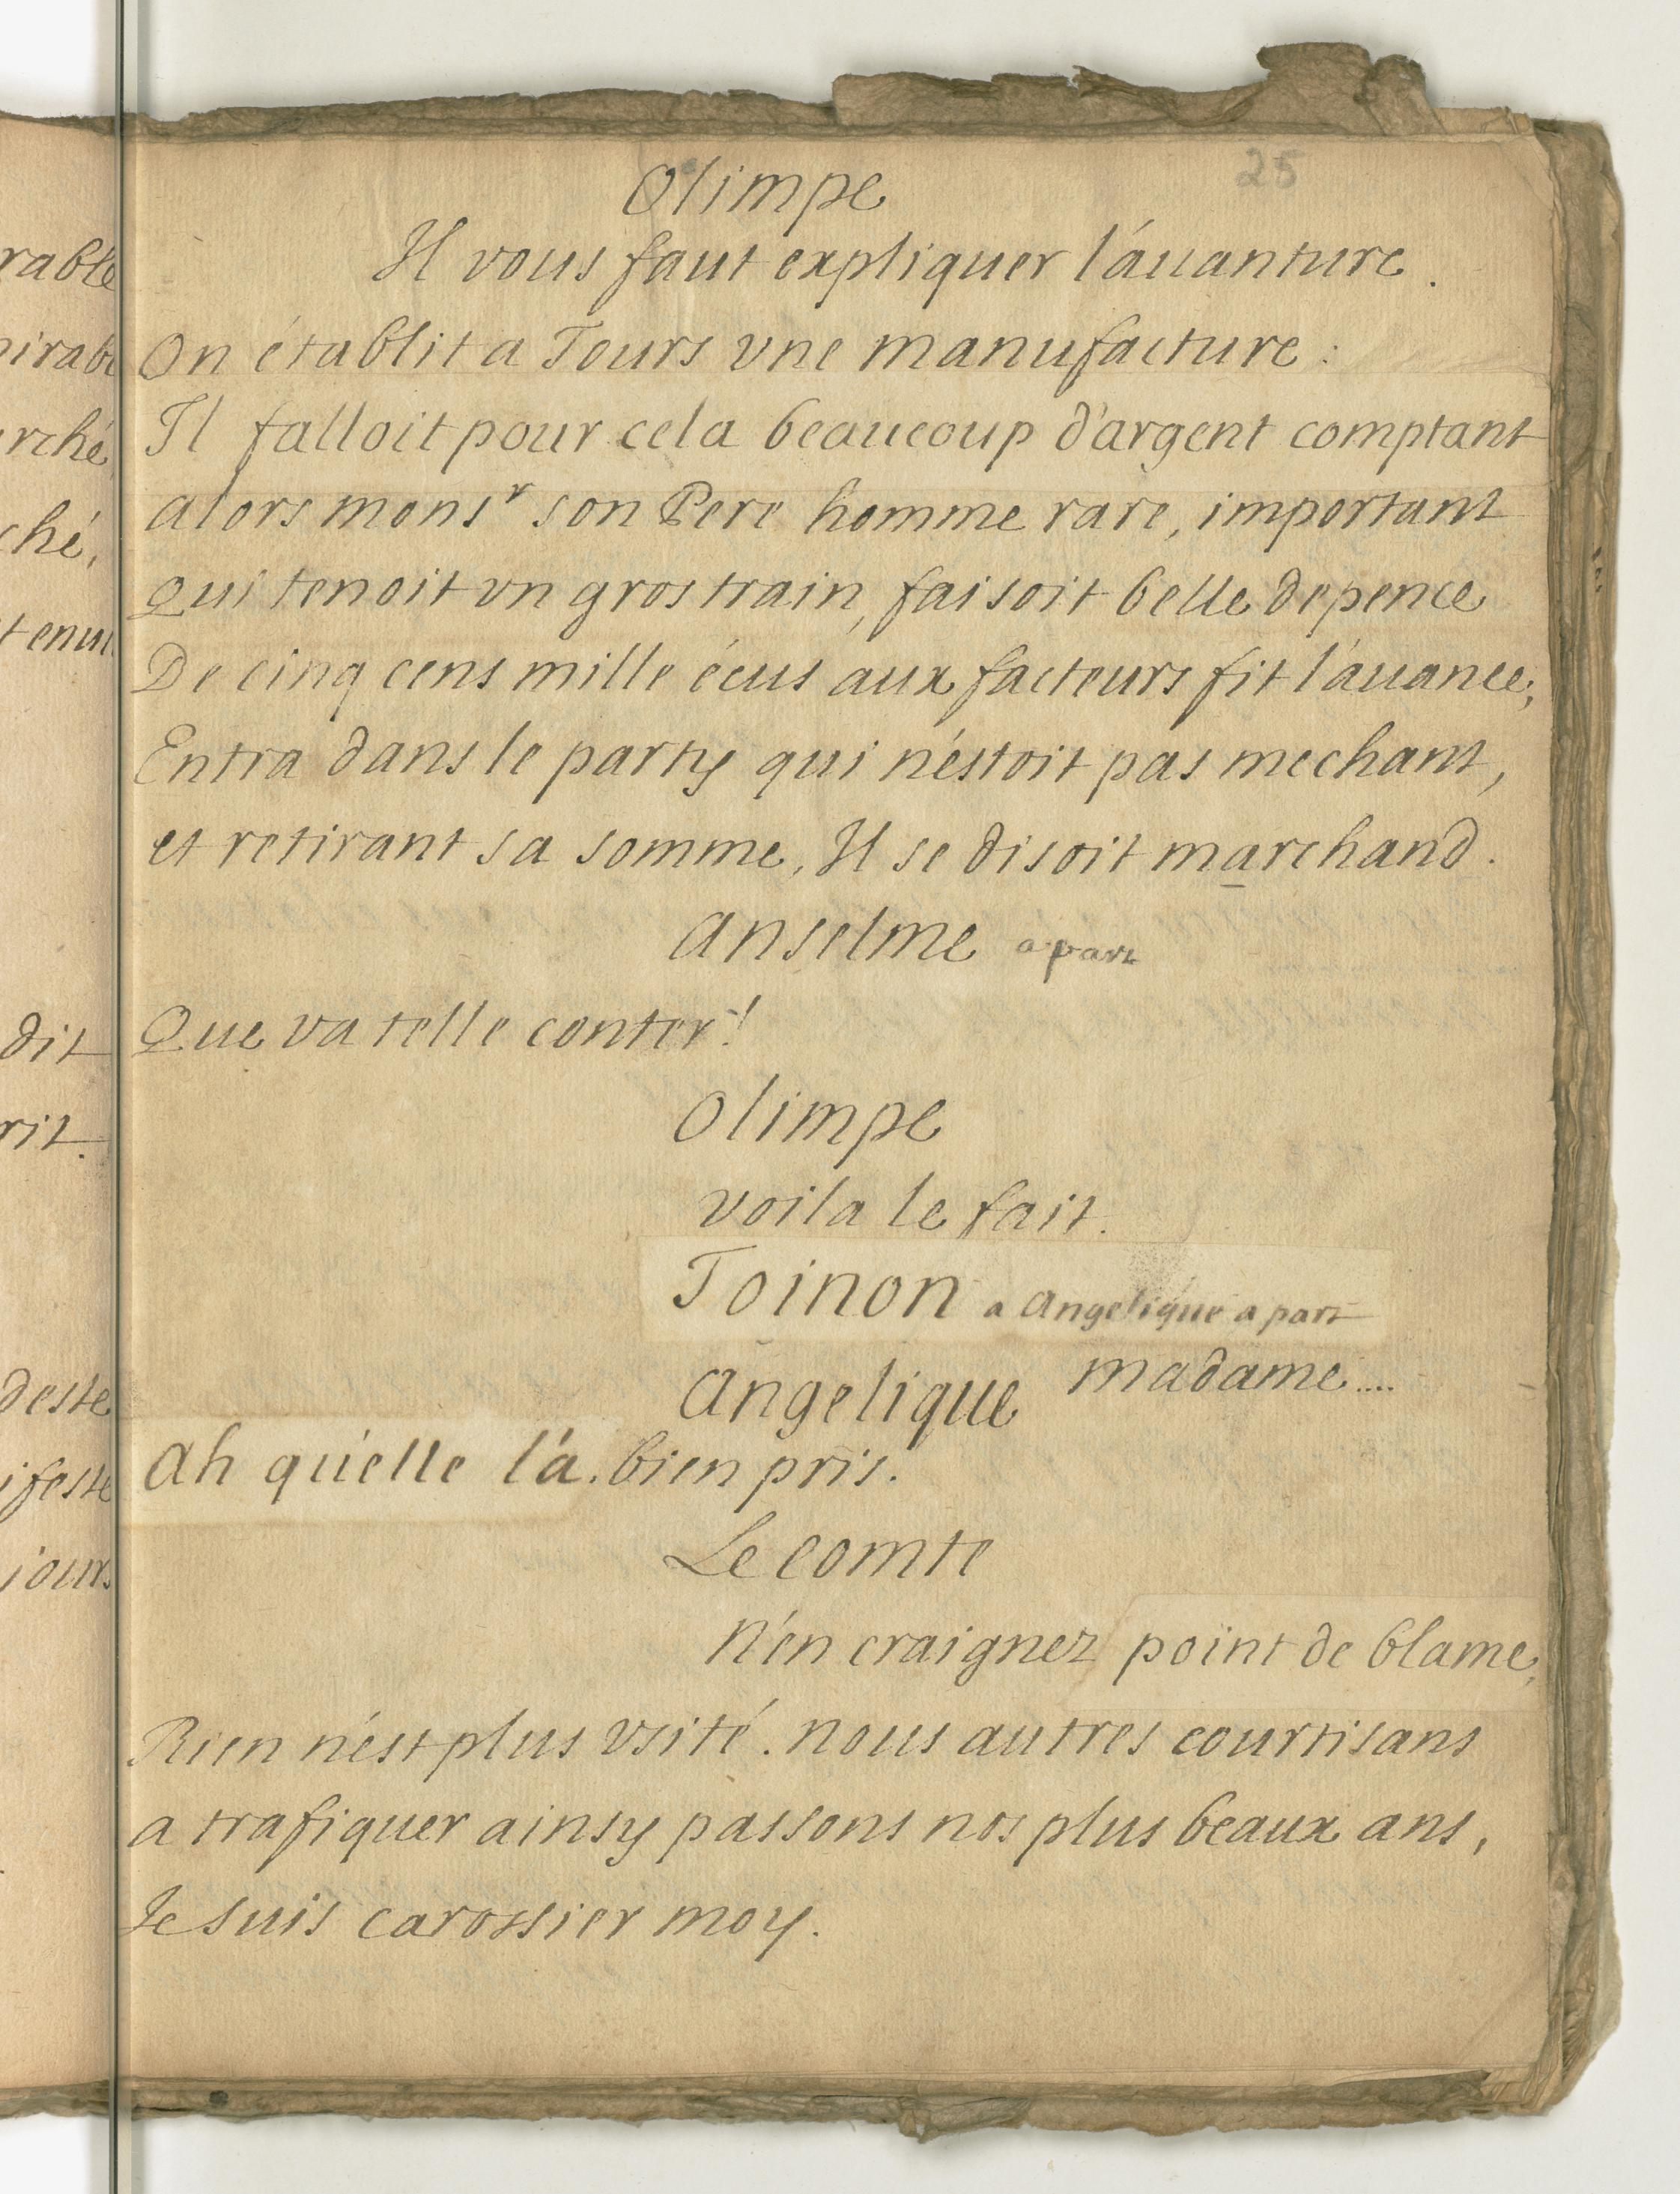 rable
irab
rché
ché,
tenu
dit
rit.
deste
ifeste
jours
25
Olimpe
Il vous faut expliquer l'auanture.
On établit a Tours vne manufacture :
Il falloit pour cela beaucoup d'argent comptant
alors monsr son Pere homme rare, important
Qui tenoit vn gros train, faisoit belle depence
De cinq cens mille écus aux facteurs fit l'auance,
Entra dans le party qui n'éstoit pas mechant,
et retirant sa somme, Il se disoit marchand.
Anselme a part
Que va telle conter!
Olimpe
voila le fait.
Toinon a Angelique a part
madame....
Angelique
Ah qu'elle l'a. bien pris.
Le comte
N'en craignez point de blame,
Rien n'est plus vsité. nous autres courtisans
a trafiquer ainsy passons nos plus beaux ans,
Je suis carossier moy.